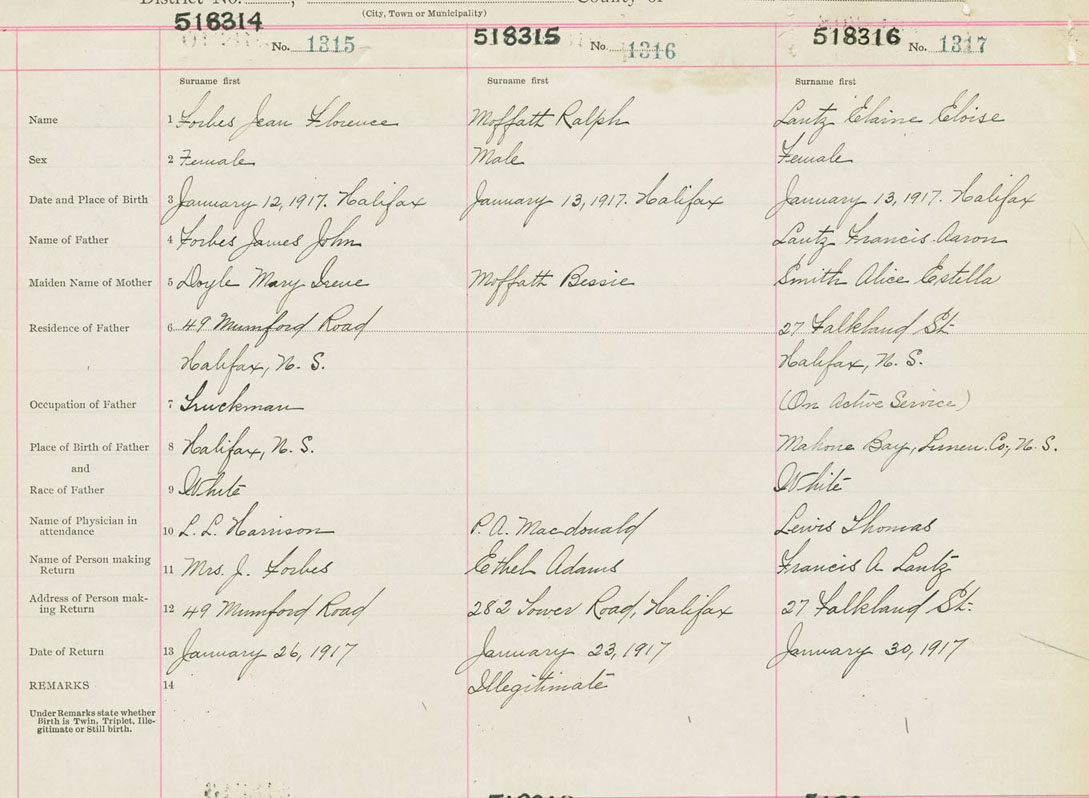 District No. , County of
(City, Town or Municipality)
518314 518315 518316
No. 1315 No. 1316 No. 1317
Surname first Surname first Surname first
Name 1 Forbes Jean Florence Moffatt Ralph Lantz Elaine Eloise
Sex 2 Female Male Female
Date and Place of Birth 3 January 12, 1917. Halifax January 13, 1917. Halifax January 13, 1917. Halifax
Name of Father 4 Forbes James John Lantz Francis Aaron
Maiden Name of Mother 5 Doyle Mary Irene Moffatt Bessie Smith Alice Estella
Residence of Father 6 49 Mumford Road 27 Falkland St.
Halifax, N. S. Halifax, N. S.
Occupation of Father 7 Truckman (On Active Service)
Place of Birth of Father 8 Halifax, N. S. Mahone Bay, Lunen. Co., N. S.
and
Race of Father 9 White White
Name of Physician in
attendance 10 L. L. Harrison P. A. Macdonald Lewis Thomas
Name of Person making
Return 11 Mrs. J. Forbes Ethel Adams Francis A Lantz
Address of Person mak-
ing Return 12 49 Mumford Road 282 Tower Road, Halifax 27 Falkland St.
Date of Return 13 January 26, 1917 January 23, 1917 January 30, 1917
REMARKS 14 Illegitimate
Under Remarks state whether
Birth is Twin, Triplet, Ille-
gitimate or Still birth.